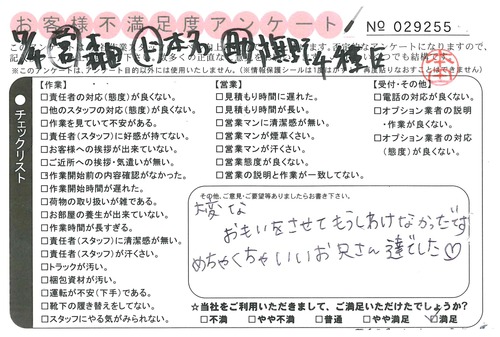 お客様不満足度アンケート
No 029255
チェックリスト
【作業】
□責任者の対応(態度)が良くない。
□他のスタッフの対応(態度)が良くない。
□作業を見ていて安心がない。
□責任者(スタッフ)に好感が持てない。
□お客様への挨拶が出来ていない。
□ご近所への挨拶・気遣いが無い。
□作業開始前の内容確認がなかった。
□作業開始時間が遅れた。
□荷物の取り扱いが雑である。
□お部屋の養生が出来ていない。
□作業時間が長すぎる。
□責任者(スタッフ)に清潔感が無い。
□責任者(スタッフ)が汗くさい。
□トラックが汚い。
□梱包資材が汚い。
□運転が不安(下手)である。
□靴下の履き替えをしてない。
□スタッフにやる気がみられない。
【営業】
□見積もり時間に遅れた。
□見積もり時間が長い。
□営業マンに清潔感が無い。
□営業マンが煙草くさい。
□営業マンが汗くさい。
□営業態度が良くない。
□営業の説明と作業が一致してない。
【受付・その他】
□電話の対応が良くない。
□オプション業者の説明
・作業が良くない。
□オプション業者の対応
(態度)が良くない。
その他、ご意見・ご要望等ありましたらお書き下さい。
大変な
おもいをさせてもうしわけなかったです
めちゃくちゃいいお兄さん達でした♡
☆当社をご利用いただきまして、ご満足いただけたでしょうか?
□不満 □やや不満 □普通 □やや満足 □満足